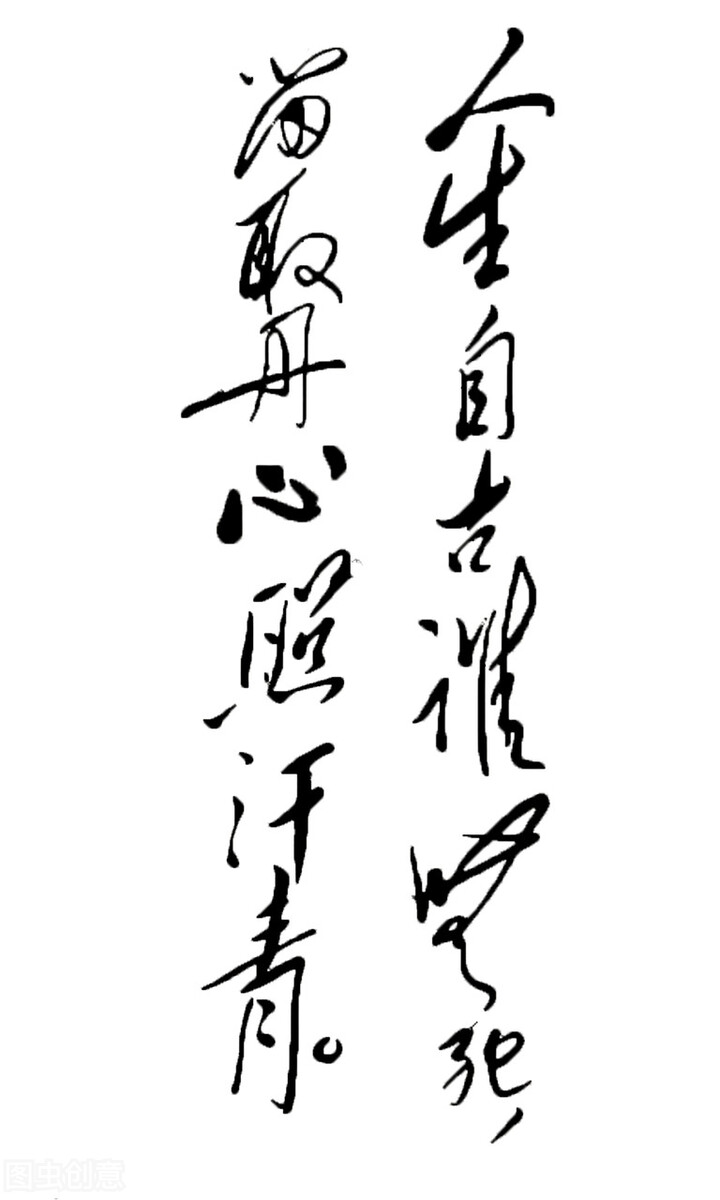 人生自古谁无死，
留取丹心照汗青。
图虫创意